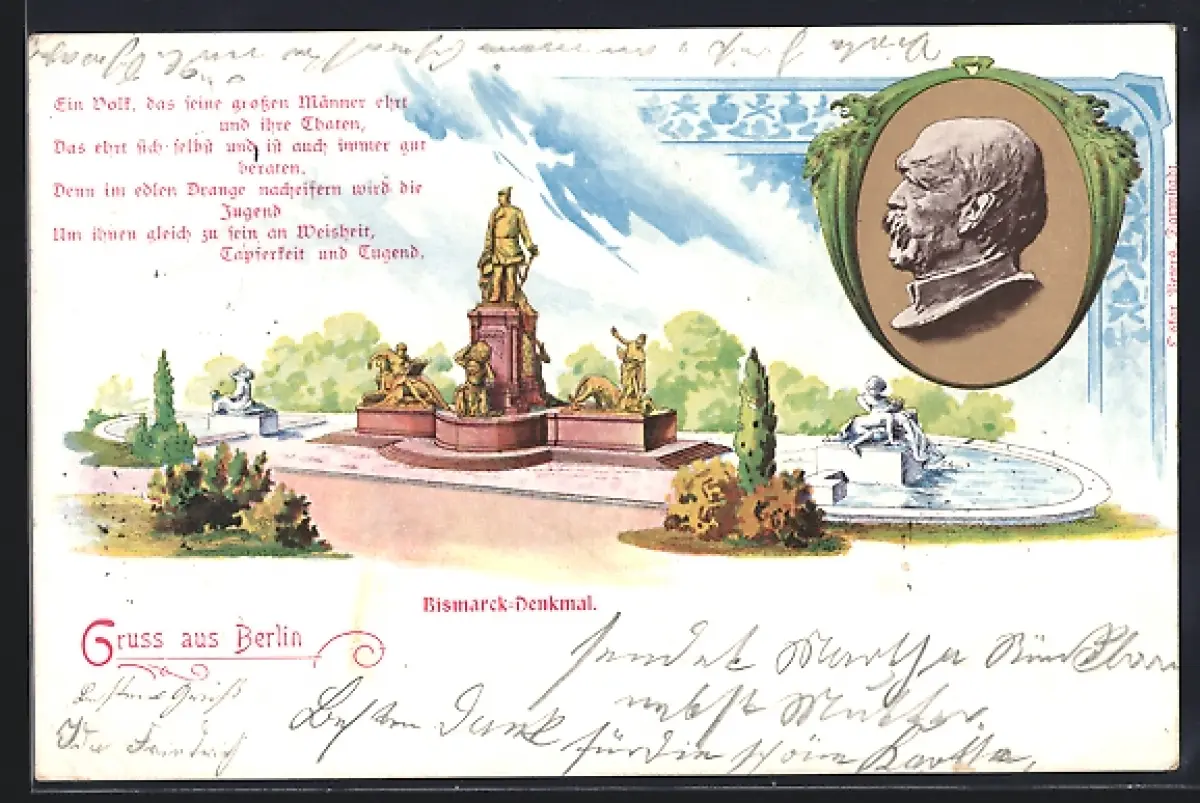 Ein Volk, das seine großen Männer ehrt
und ihre Thaten,
Das ehrt sich selbst und ist auch immer gut
beraten,
Denn im edlen Drange nacheifern wird die
Jugend
Um ihnen gleich zu sein an Weisheit,
Tapferkeit und Tugend.
Bismarck-Denkmal.
Gruss aus Berlin
sendet Martha
nebst Mutter.
Besten Dank für die schöne Kartte,
Besten Gruß
Ida Friedrich